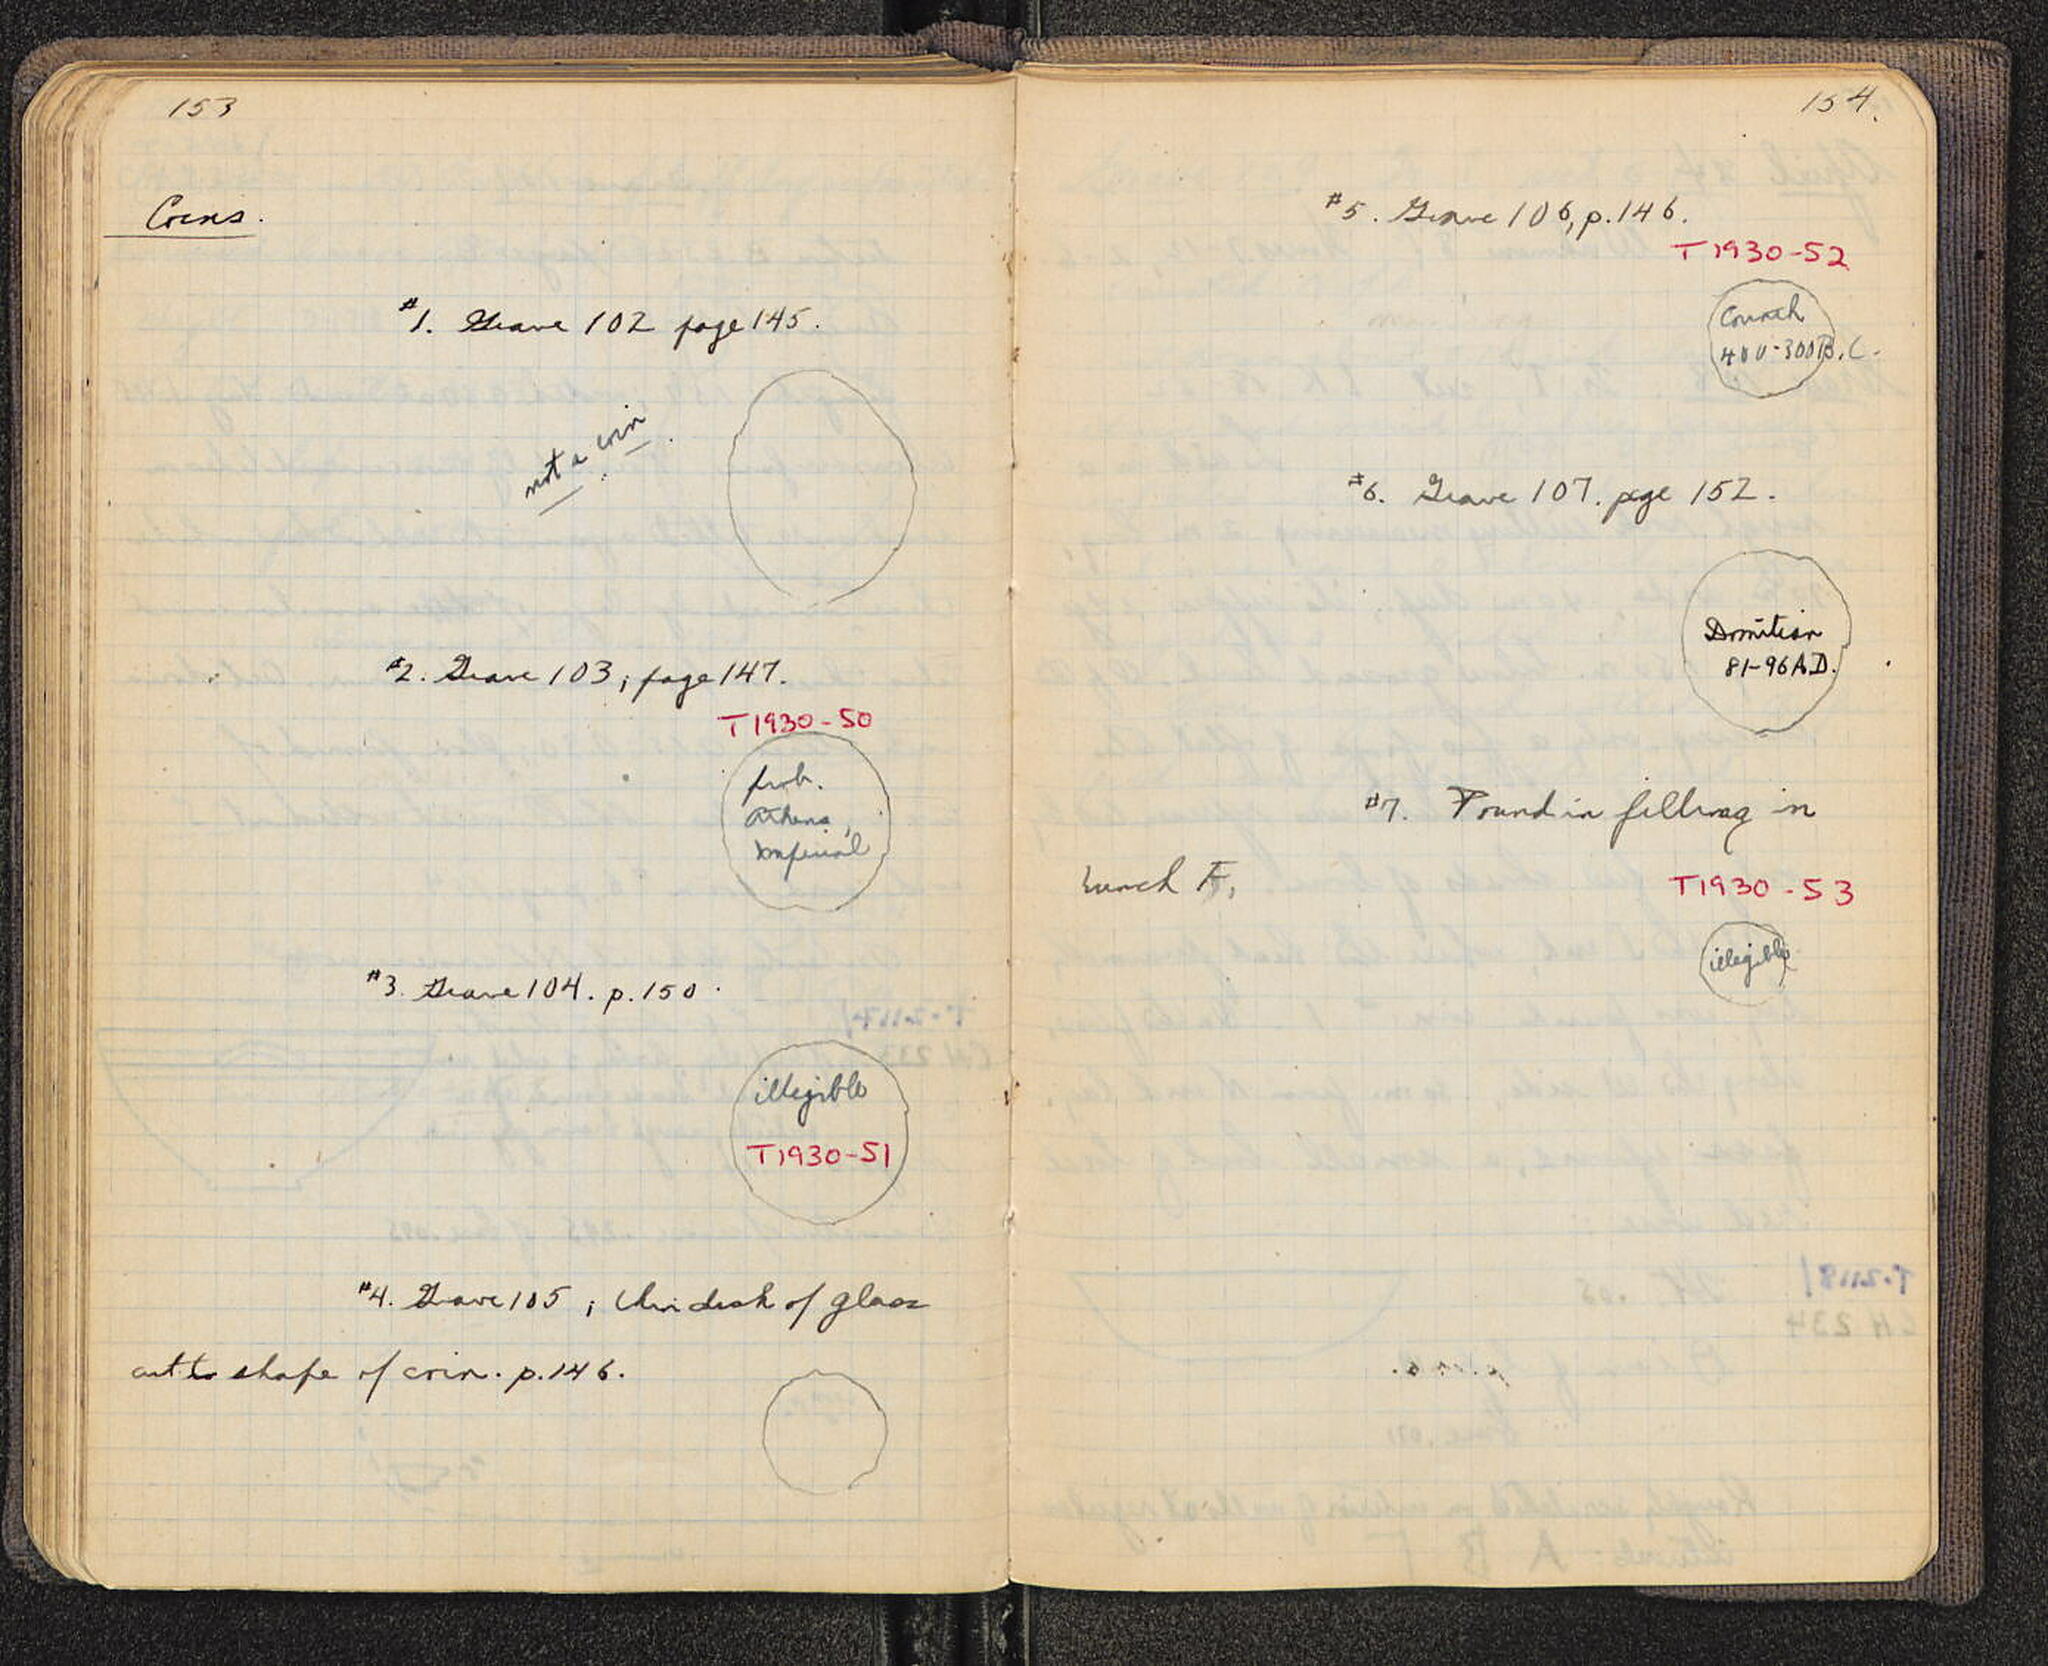 153
Coins.
#1. Grave 102 page 145.
not a coin.
#2. Grave 103; page 147.
T1930-50
prob.
Athens,
Imperial
#3. Grave 104. p. 150.
illegible
T1930-51
#4. Grave 105; thin disk of glass
cut to shape of coin. p. 146.
154.
#5. Grave 106, p. 146.
T1930-52
Corinth
400-300 B.C.
#6. Grave 107. page 152.
Domitian
81-96 A.D.
#7. Found in filling in
trench F.
T1930-53
illegible